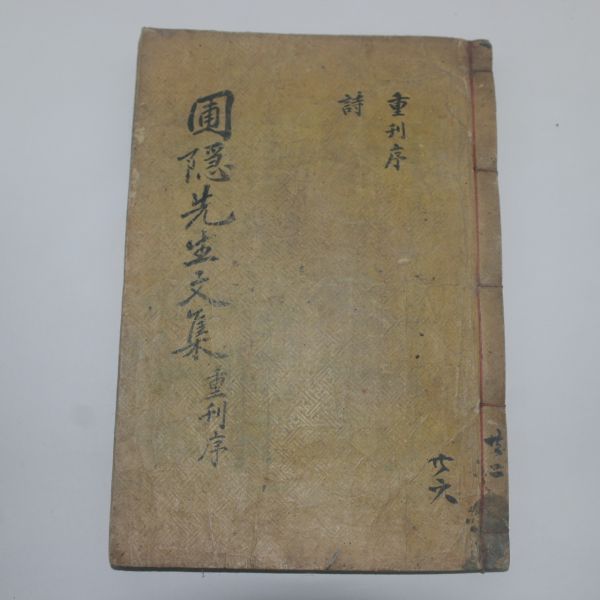 重刊序
詩
圃隱先生文集 重刊序
廿六